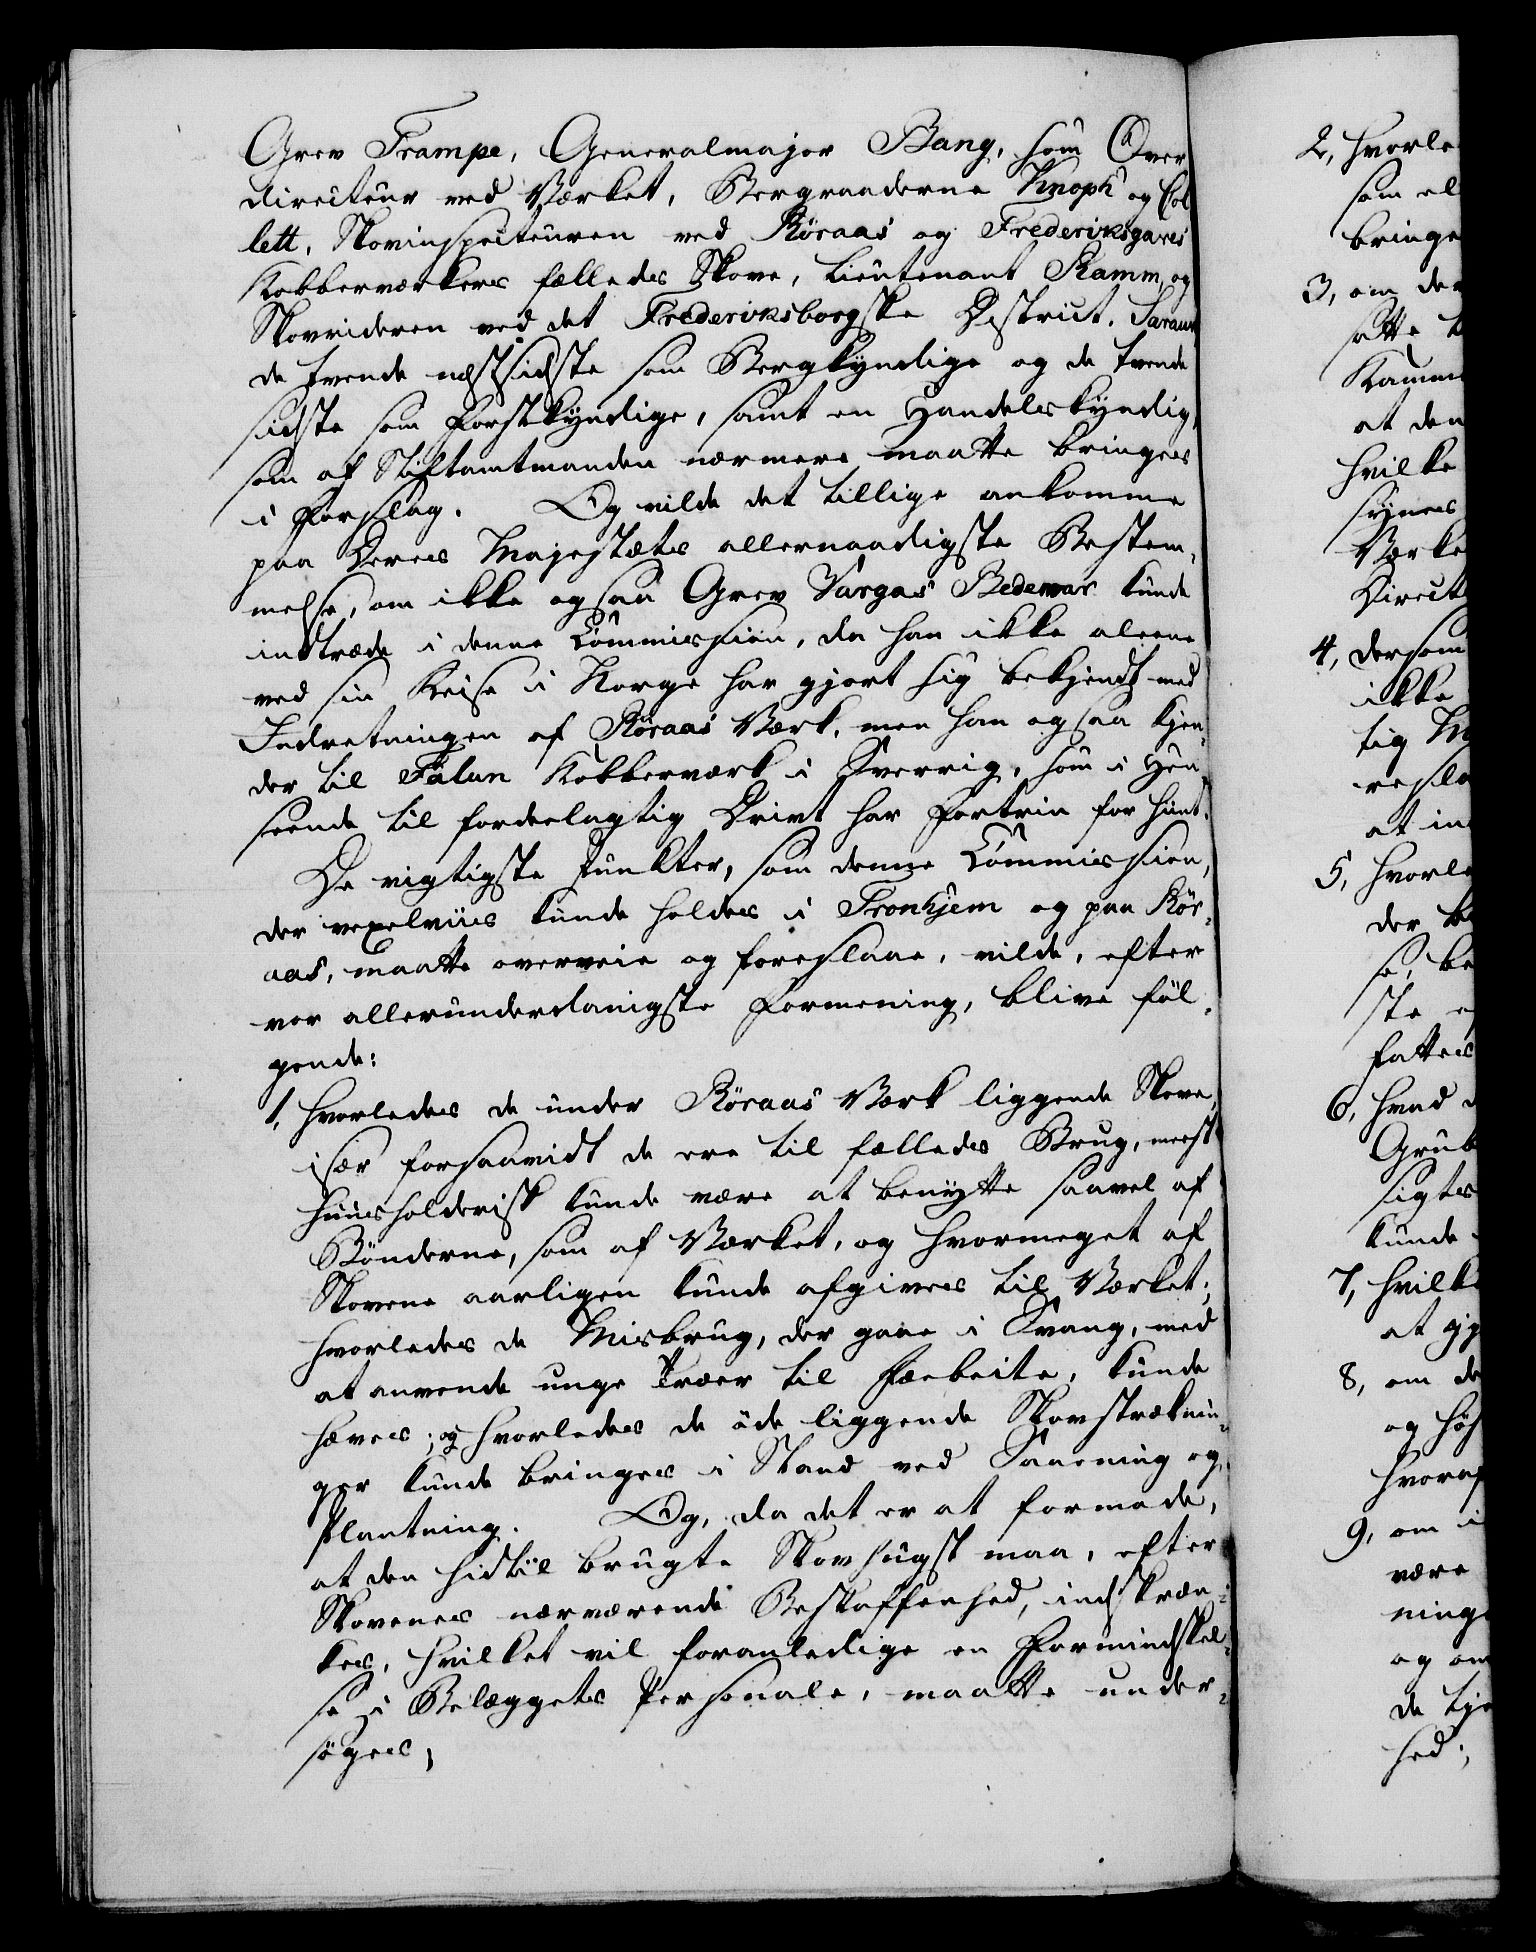 Grev Trampe, Generalmajor Bang, som Over
directeur ved Værket, Bergraaderne Knoph og Col
lett, Skovinspecteuren ved Røraas og Frederiksgaves
Kobberværkers fælleds Skove, Lieutenant Ramm, og
Skovrideren ved det Frederiksborgske District, Sarauw
de tvende næstsidste som Bergkyndige og de tvende
sidste som Forstkyndige, samt en Handelskyndig,
som af Stiftamtmanden nærmere maatte bringes
i Forslag. Og vilde det tillige ankomme
paa Deres Majestæts allernaadigste Bestem,
melse, om ikke ogsaa Grev Vargas Bedemar kunde
indtræde i denne Commission, da han ikke aleene
ved sin Reise i Norge har gjort sig bekjendt med
Indretningen af Røraas Værk, men han ogsaa kjen,
der til Fålun Kobberværk i Sverrig, som i Hen
seende til fordeelagtig Drivt har Fortrin for hiint.
De vigtigste Punkter, som denne Commission,
der vexelviis kunde holdes i Tronhjem og paa Rør,
aas, maatte overveie og foreslaae, vilde, efter
vor allerunderdanigste Formening, blive føl,
gende:
1, hvorledes de under Røraas Værk liggende Skove,
især forsaavidt de ere til fælleds Brug, meest
huusholderisk kunde være at benytte saavel af
Bønderne, som af Værket, og hvormeget af
Skovene aarligen kunde afgives til Værket;
hvorledes de Misbrug, der gaae i Svang, med
at anvende unge Træer til Færbeite, kunde
hæves; og hvorledes de øde liggende Skovstræknin,
ger kunde bringes i Stand ved Saaening og
Plantning. Og, da det er at formode,
at den hidtil brugte Skovhugst maa, efter
Skovenes nærværende Beskaffenhed, indskræn,
kes, hvilket vil foranledige en Formindskel,
se i Belæggets Personale, maatte under,
søges,
2, hvorle
som el
bringe
3, om de
satte
Kamm
at den
hvilke
synes
Værke
Direct
4, dersom
ikke
tig
at in
5, hvorle
der
se, be
ste
fattes
6, hvad
Grub
sigtes
kunde
7, hvilke
at gj
8, om de
og
hvoraf
9, om i
være
ninge
og om
de tje
hed;